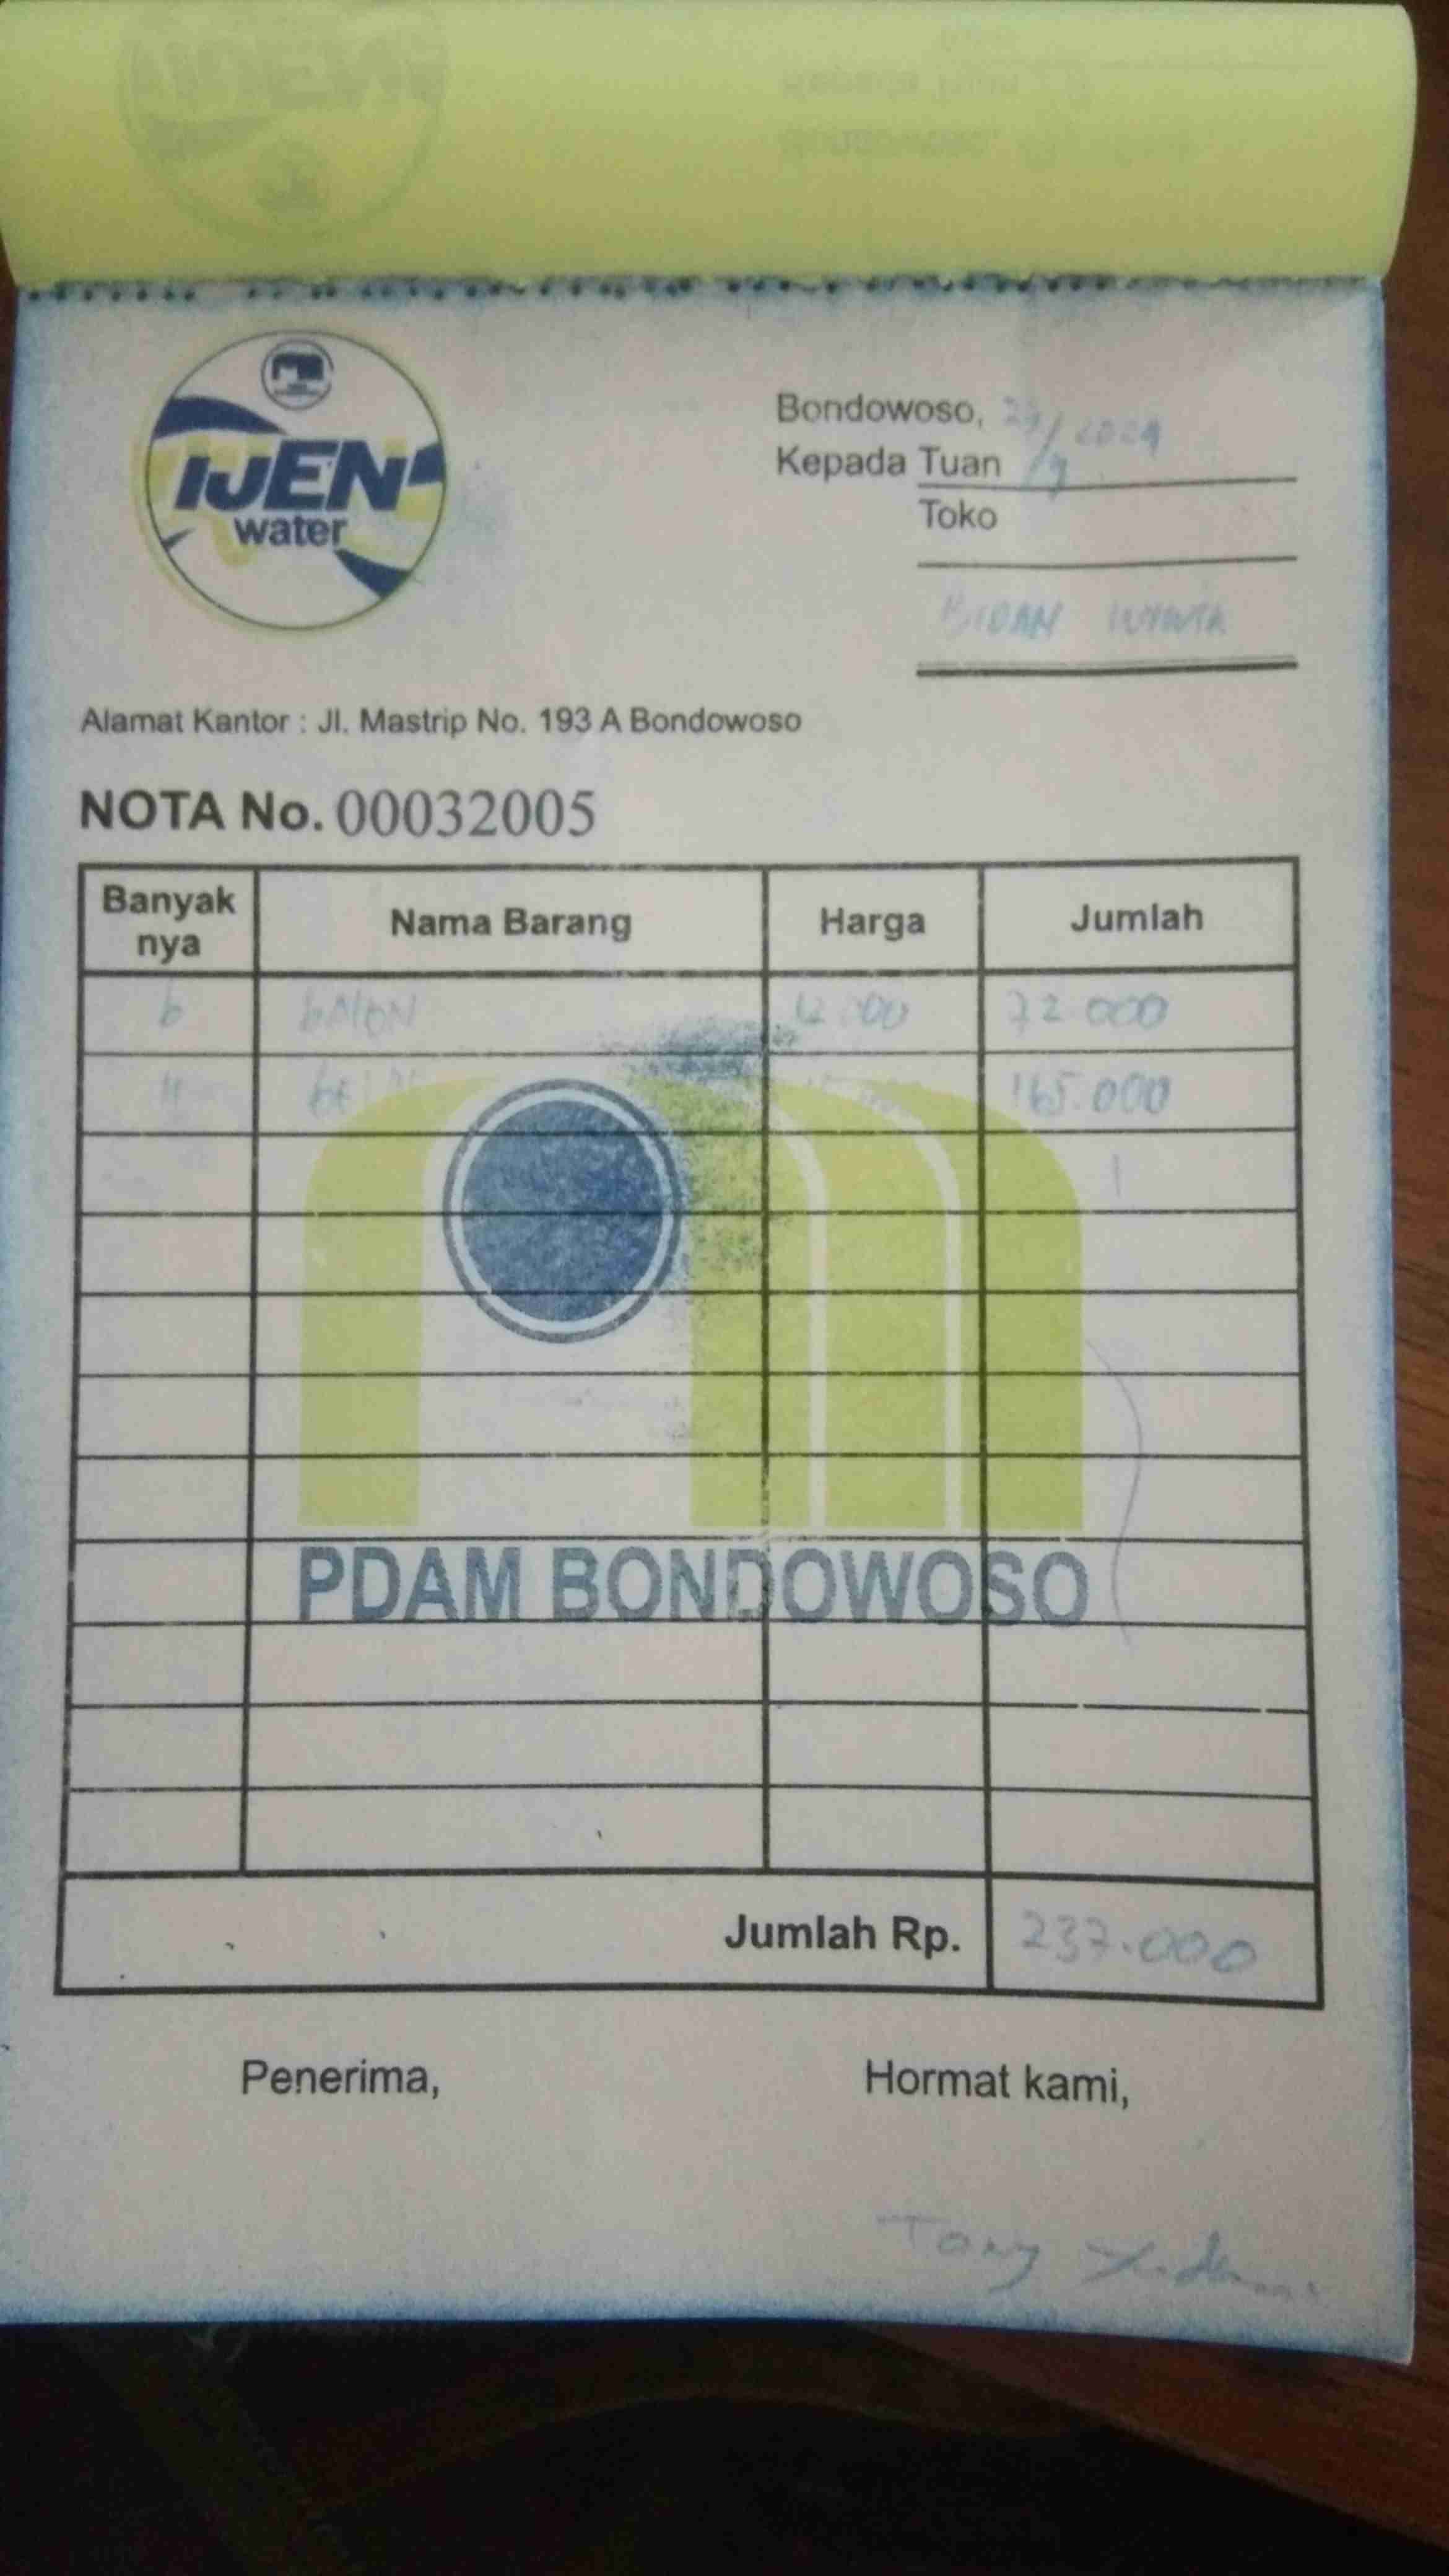 IJEN
water
Bondowoso, 2024
Kepada Tuan
Toko
BIDAN
Alamat Kantor : Jl. Mastrip No. 193 A Bondowoso
NOTA No. 00032005
Banyak nya Nama Barang Harga Jumlah
6 GALON 12.000 72.000
11 165.000
PDAM BONDOWOSO
Jumlah Rp. 237.000
Penerima, Hormat kami,
Tony